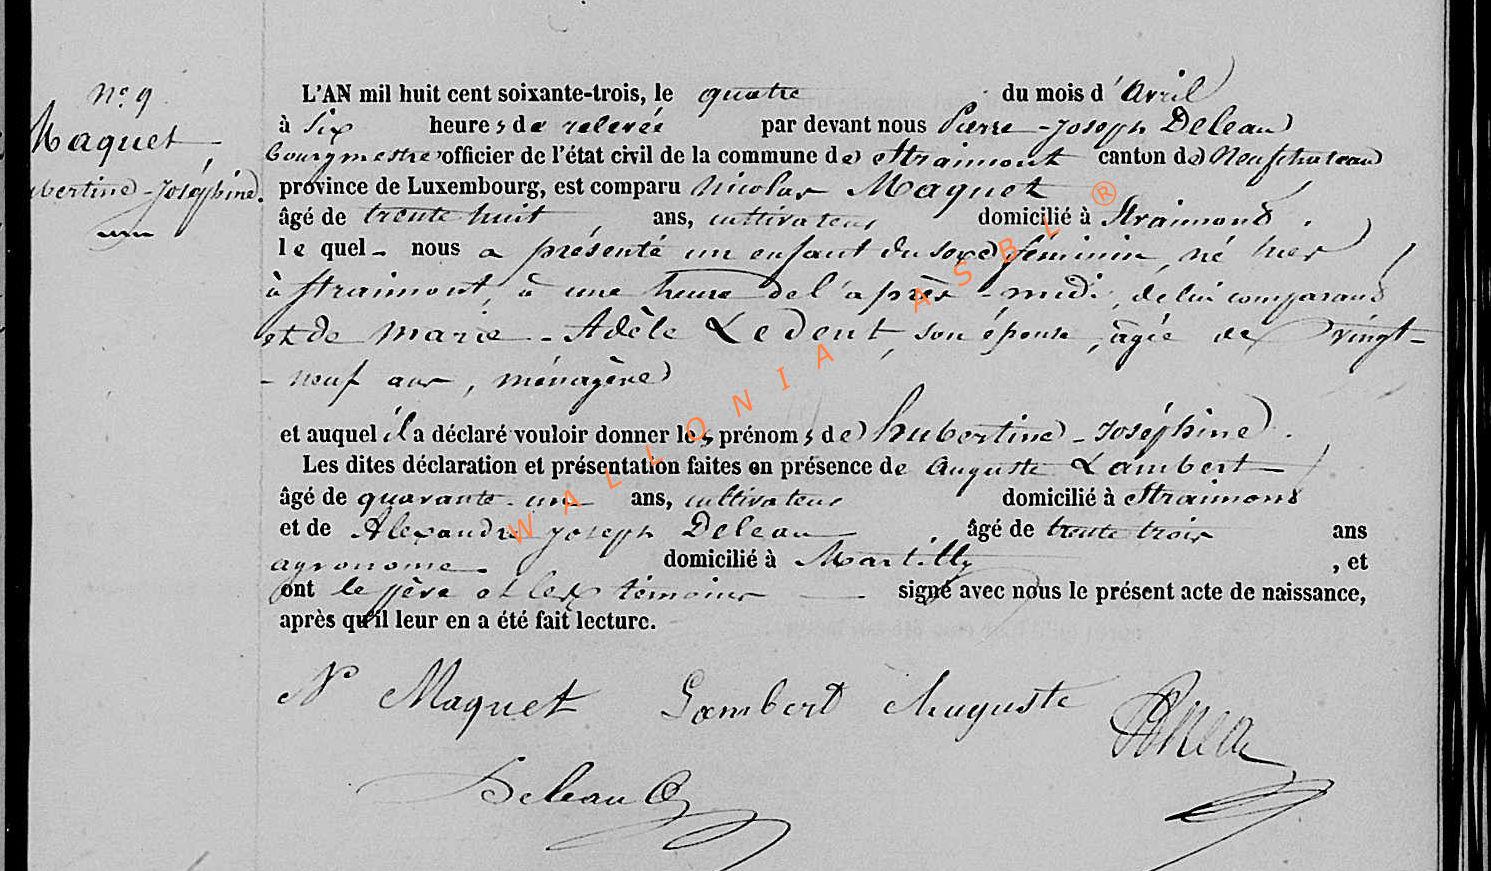 N° 9
Maquet,
ubertine-Joséphine.
L'AN mil huit cent soixante-trois, le quatre du mois d'Avril
à six heures de relevée par devant nous Pierre-Joseph Deleau
bourgmestre officier de l'état civil de la commune de Straimont canton de Neufchateau
province de Luxembourg, est comparu Nicolas Maquet
âgé de trente huit ans, cultivateur domicilié à Straimont.
lequel nous a présenté un enfant du sexe féminin, né hier
à Straimont, à une heure de l'après-midi, de lui comparant
et de Marie-Adèle Ledent, son épouse, âgée de vingt-
-neuf ans, ménagère
et auquel il a déclaré vouloir donner les prénoms de hubertine-Joséphine.
Les dites déclaration et présentation faites en présence de Auguste Lambert
âgé de quarante-un ans, cultivateur domicilié à Straimont
et de Alexandre Joseph Deleau âgé de trente trois ans
agronome. domicilié à Martilly, et
ont le père et les témoins signé avec nous le présent acte de naissance,
après qu'il leur en a été fait lecture.
N Maquet Lambert Auguste
Deleau
WALLONIA ASBL ®